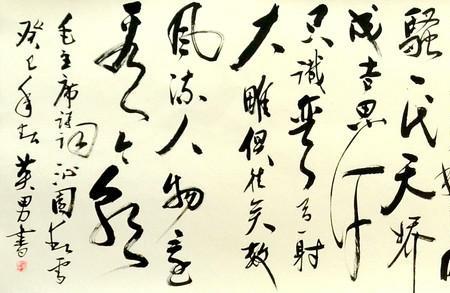 騷一代天驕
成吉思汗
只識彎弓射
大雕俱往矣数
风流人物还
看今朝
毛主席诗词沁园春雪
癸巳年英男書